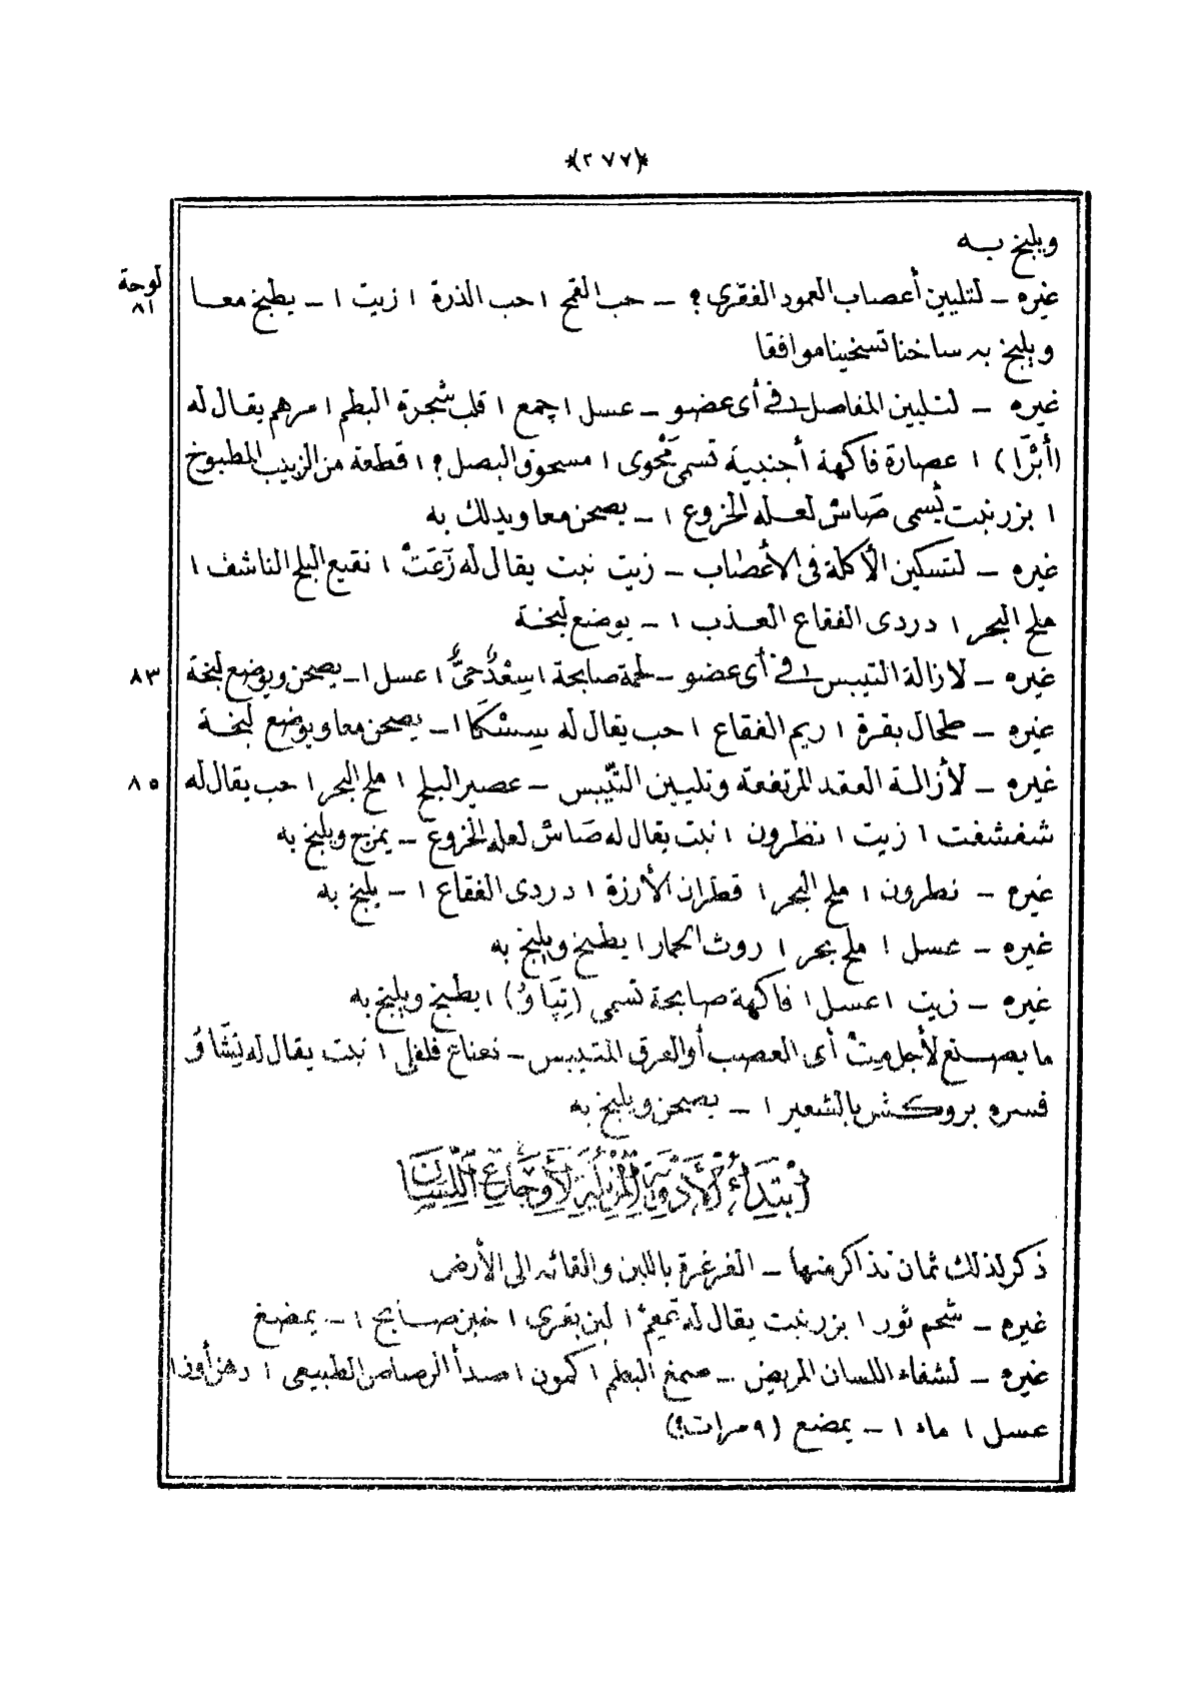 *(٢٧٧)*
ويلبخ به
غيره – لتليين أعصاب العمود الفقرى ؟ – حب القمح ١ حب الذرة ١ زيت ١ – يطبخ معا
لوحة ٨١
ويلبخ به ساخنا تسخينا موافقا
غيره – لتليين المفاصل فى أى عضو – عسل ١ جمع ١ قلب شجرة البطم ١ مرهم يقال له
(أَبْرَا) ١ عصارة فاكهة أجنبية تسمى مَخْوى ١ مسحوق البصل ؟ ١ قطعة من الزبيب المطبوخ
١ بزر نبت يسمى صَاسْ لعله الخروع ١ – يصحن معا ويدلك به
غيره – لتسكين الأكلة فى الأعصاب – زيت نبت يقال له زَعَتْ ١ نقيع البلح الناشف ١
ملح البحر ١ دردى الفقاع العذب ١ – يوضع لبخة
غيره – لازالة التيبس فى أى عضو – لحمة صابحة ١ سِعْدٌ حىٌّ ١ عسل ١ – يصحن ويوضع لبخة
٨٣
غيره – طحال بقرة ١ ريم الفقاع ١ حب يقال له سِسْكَا ١ – يصحن معا ويوضع لبخة
غيره – لأزالة العقد المرتفعة وتليين التيبس – عصير البلح ١ ملح البحر ١ حب يقال له
٨٥
شفشفت ١ زيت ١ نطرون ١ نبت يقال له صَاسْ لعله الخروع – يمزج ويلبخ به
غيره – نطرون ١ ملح البحر ١ قطران الأرزة ١ دردى الفقاع ١ – يلبخ به
غيره – عسل ١ ملح بحر ١ روث الحمار ١ يطبخ ويلبخ به
غيره – زيت ١ عسل ١ فاكهة صابحة تسمى (تِپَاوُ) ١ يطبخ ويلبخ به
ما يصنع لأجل مِتْ أى العصب أو العرق المتيبس – نعناع فلفلى ١ نبت يقال له نِشَاوُ
فسره بروكش بالشعير ١ – يصحن ويلبخ به
ابْتِدَاءُ الْأَدْوِيَةِ الْمُزِيلَةِ لِأَوْجَاعِ اللِّسَانِ
ذكر لذلك ثمان تذاكر منها – الغرغرة باللبن والقائه الى الأرض
غيره – شحم ثور ١ بزر نبت يقال له تَمِعِمْ ١ لبن بقرى ١ خبز صابح ١ – يمضغ
غيره – لشفاء اللسان المريض – صمغ البطم ١ كمون ١ صدأ الرصاص الطبيعى ١ دهن أوز ١
عسل ١ ماء ١ – يمضغ (٩ مرات ؟)